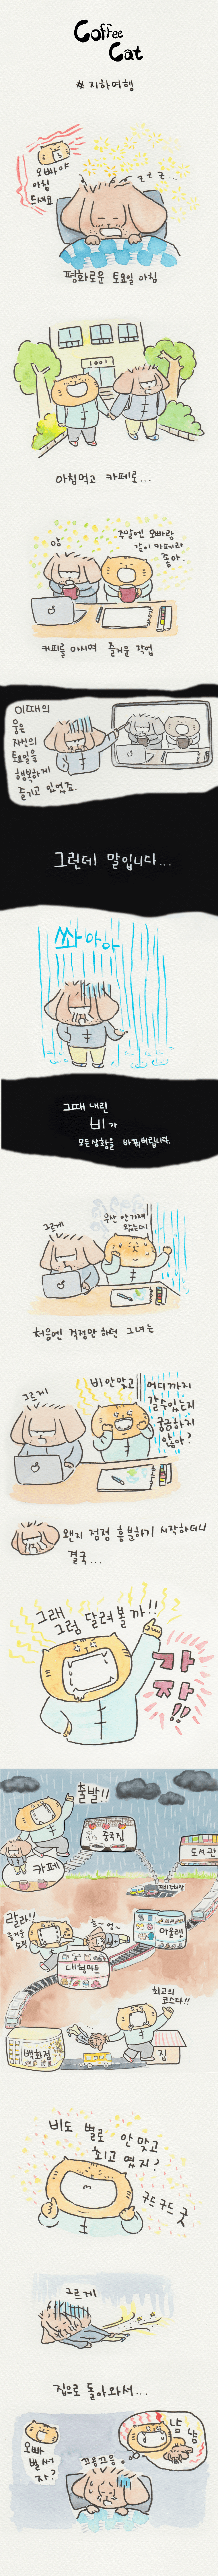 Coffee
Cat
# 지하여행
오빠야
아침
드세요
z z z ...
평화로운 토요일 아침
1001
아침먹고 카페로...
앙
주말엔 오빠랑
같이 카페라
좋아.
커피를 마시며 즐거운 작업
이때의
웅은
자신의
토요일을
행복하게
즐기고 있었죠.
그런데 말입니다...
쏴아아
그때 내린
비가
모든상황을 바꿔버립니다.
그르게
우산 안가져
왔는데
처음엔 걱정만 하던 그녀는
그르게
비안맞고
어디까지
갈수있는지
궁금하지
않아?
왠지 점점 흥분하기 시작하더니
결국...
그래
그럼 달려볼까!!
가
자!!
출발!!
중국집
도서관
카페
랄라!!
즐거운
쇼핑
아울렛
대형마트
최고의
코스다!!
백화점
집
비도 별로 안 맞고
최고였지?
굿드굿드 굿
그르게
집으로 돌아와서...
오빠
벌써
자?
끄응끄응
냠
냠